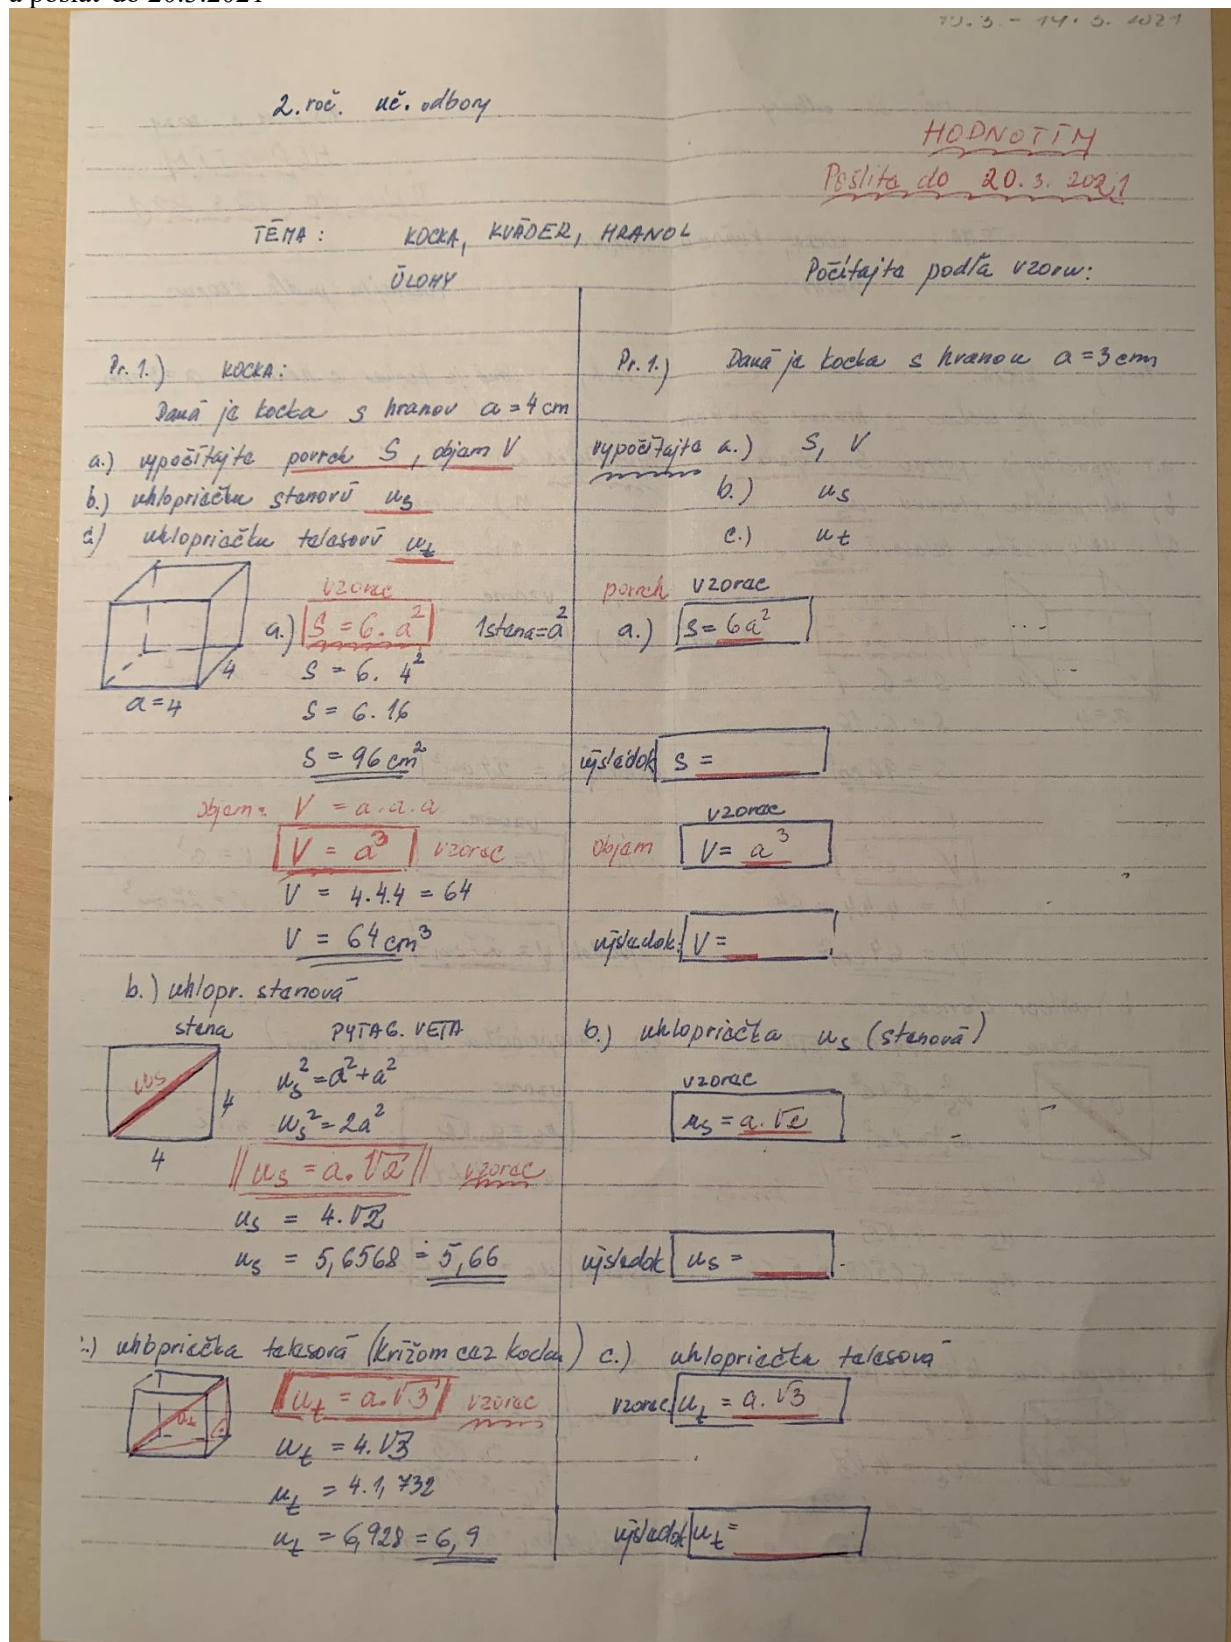 a poslať do 20.3.2021
2. roč. uč. odbory
HODNOTÍM
Pošlite do 20.3.2021
TÉMA: KOCKA, KVÁDER, HRANOL
ÚLOHY
Počítajte podľa vzoru:
Pr. 1.) KOCKA:
Daná je kocka s hranou a = 4 cm
a.) vypočítajte povrch S, objem V
b.) uhlopriečku stenovú us
c) uhlopriečku telesovú ut
a = 4
4
vzorec
a.) S = 6. a² 1 stena = a²
S = 6. 4²
S = 6. 16
S = 96 cm²
objem: V = a.a.a
V = a³ vzorec
V = 4.4.4 = 64
V = 64 cm³
b.) uhlopr. stenová
stena PYTAG. VETA
us
4
4
us² = a² + a²
us² = 2a²
us = a. √2 vzorec
us = 4. √2
us = 5,6568 ≐ 5,66
c.) uhlopriečka telesová (krížom cez kocku)
ut
ut = a. √3 vzorec
ut = 4. √3
ut = 4. 1,732
ut = 6,928 = 6,9
Pr. 1.) Daná je kocka s hranou a = 3 cm
vypočítajte a.) S, V
b.) us
c.) ut
povrch vzorec
a.) S = 6a²
výsledok S =
vzorec
objem V = a³
výsledok: V =
b.) uhlopriečka us (stenová)
vzorec
us = a. √2
výsledok us =
c.) uhlopriečka telesová
vzorec ut = a. √3
výsledok ut =